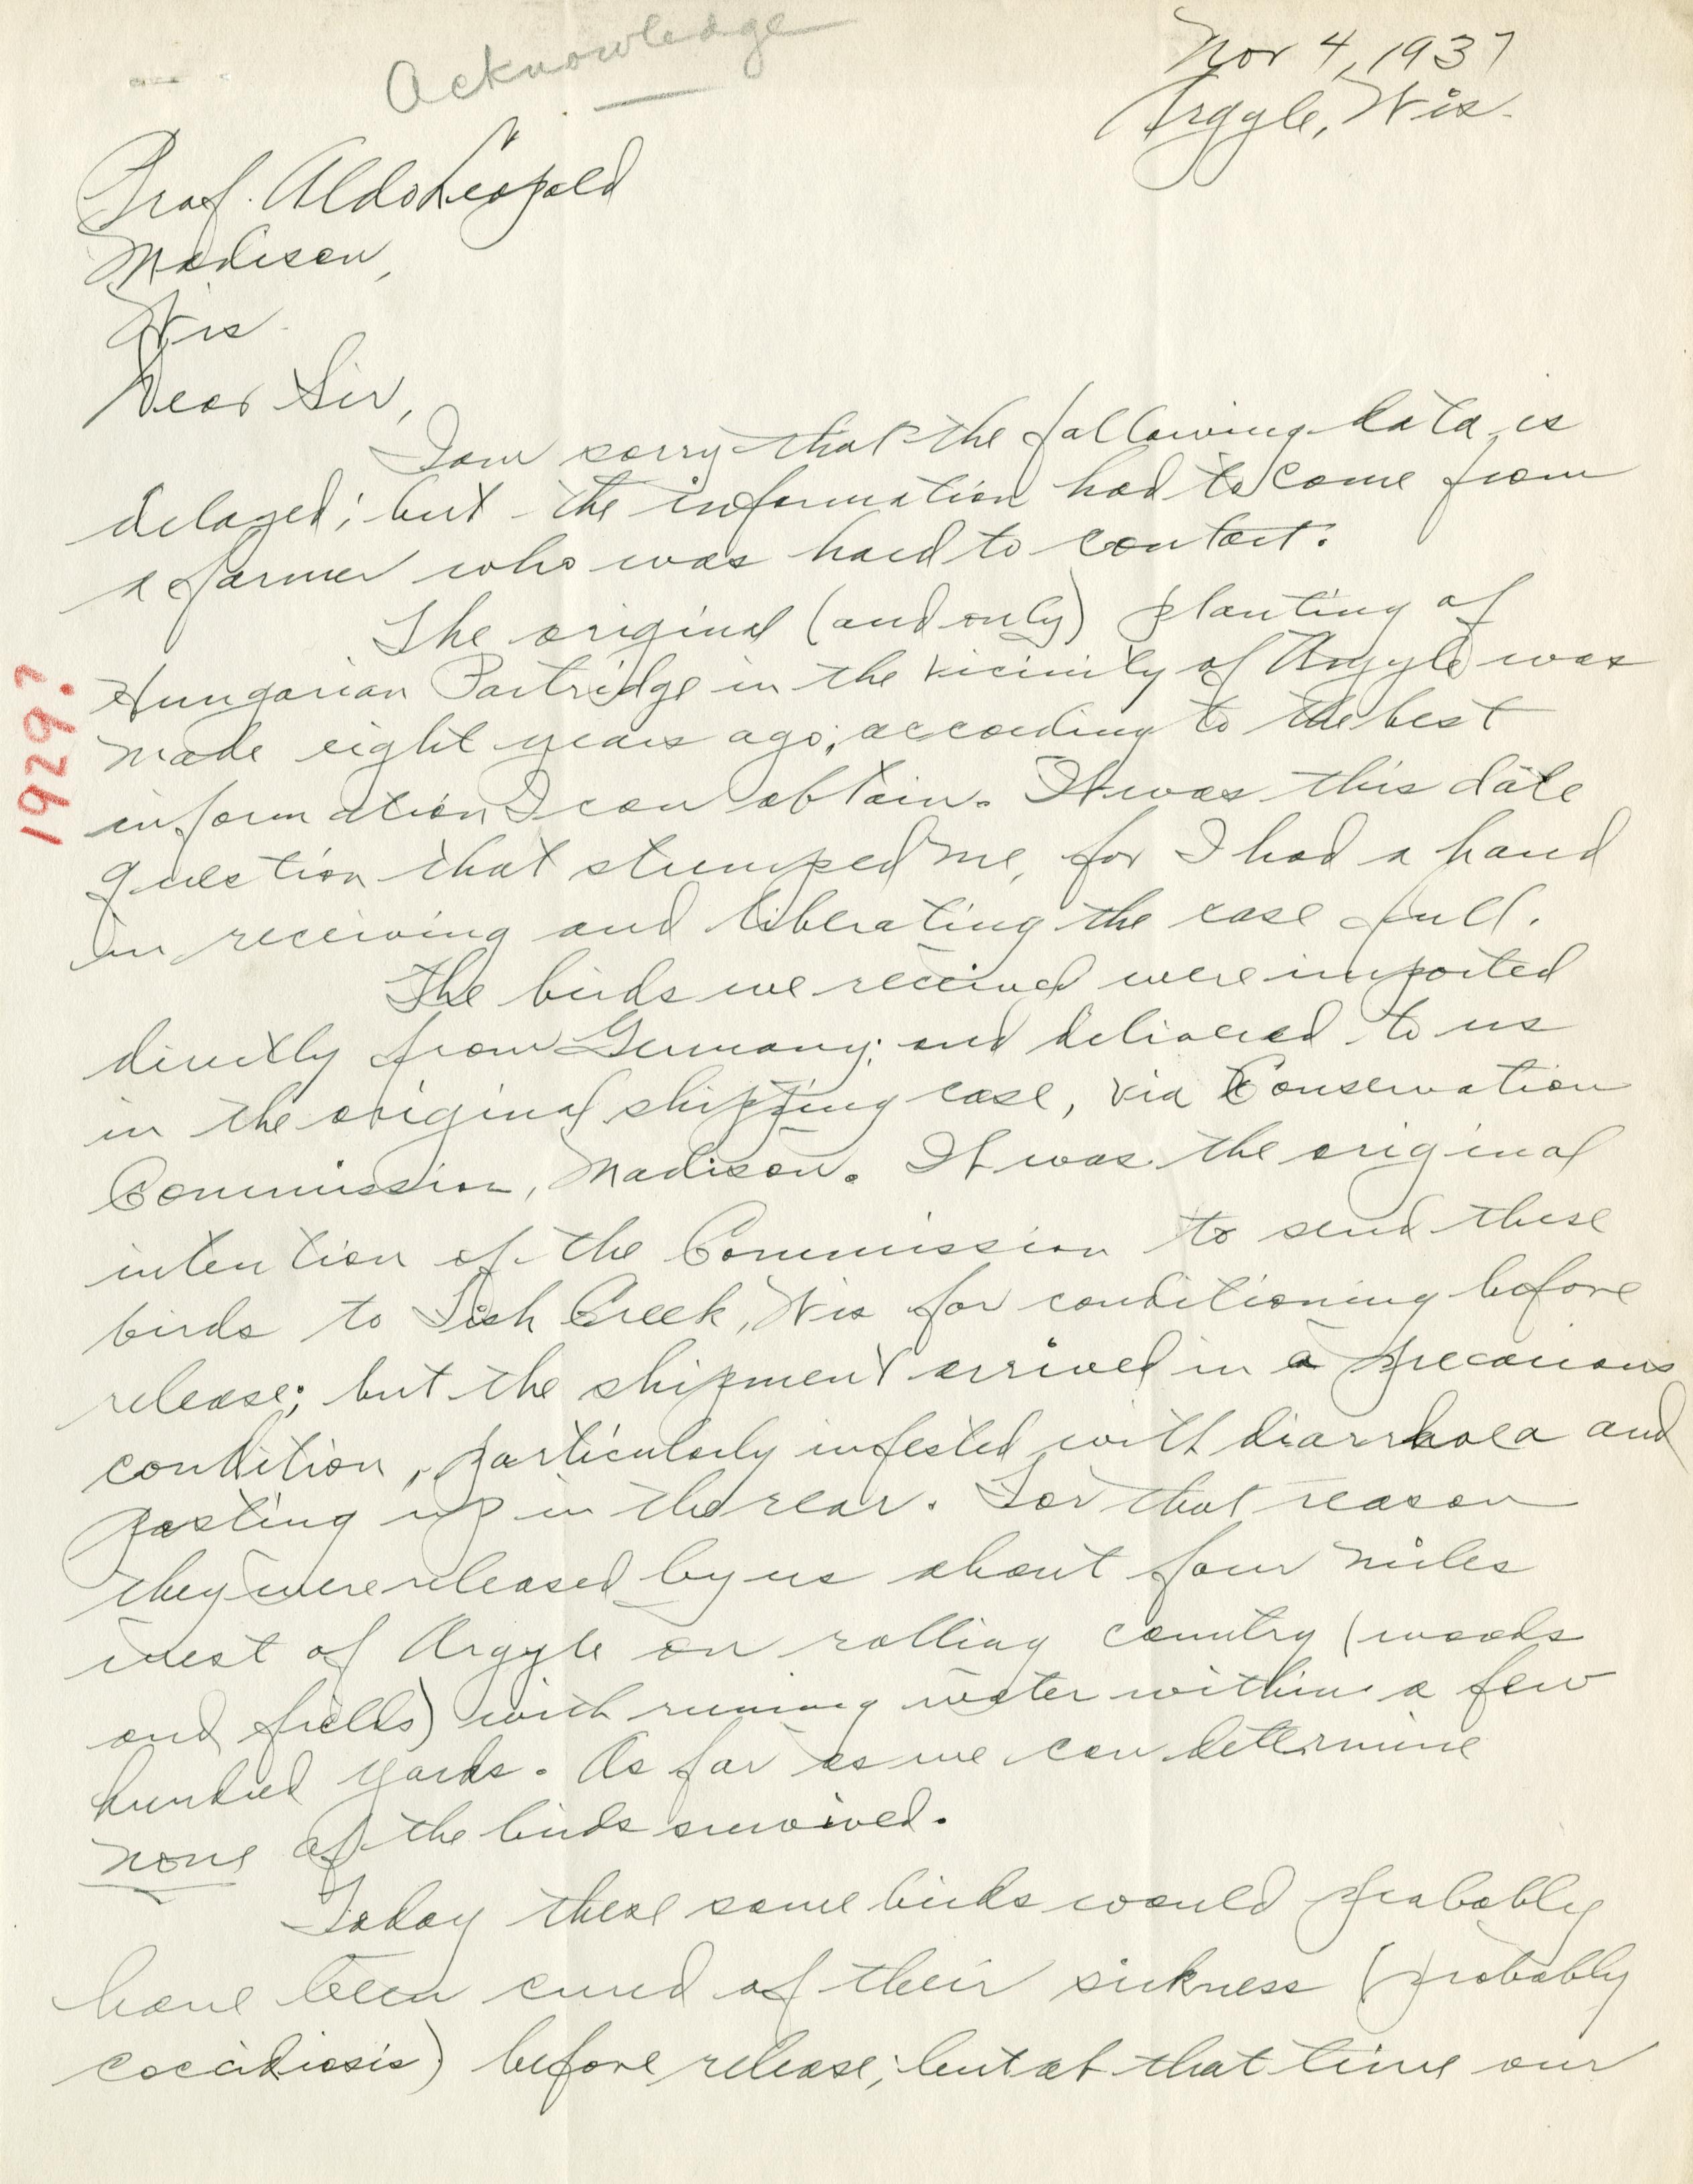 Acknowledge
Nov 4, 1937
Argyle, Wis.
Prof. Aldo Leopold
Madison,
Wis.
Dear Sir,
I am sorry that the following data is
delayed; but the information had to come from
a farmer who was hard to contact.
The original (and only) planting of
Hungarian Partridge in the vicinity of Argyle was
made eight years ago; according to the best
information I can obtain. It was this date
question that stumped me, for I had a hand
in receiving and liberating the case full.
1929?
The birds we received were imported
directly from Germany; and delivered to us
in the original shipping case, via Conservation
Commission, Madison. It was the original
intention of the Commission to send these
birds to Fish Creek, Wis for conditioning before
release; but the shipment arrived in a precarious
condition, particularly infested with diarrhoea and
pasting up in the rear. For that reason
they were released by us about four miles
west of Argyle on rolling country (woods
and fields) with runing water within a few
hundred yards. As far as we can determine
none of the birds survived.
Today these same birds would probably
have been cured of their sickness (probably
coccidiosis) before release; but at that time our